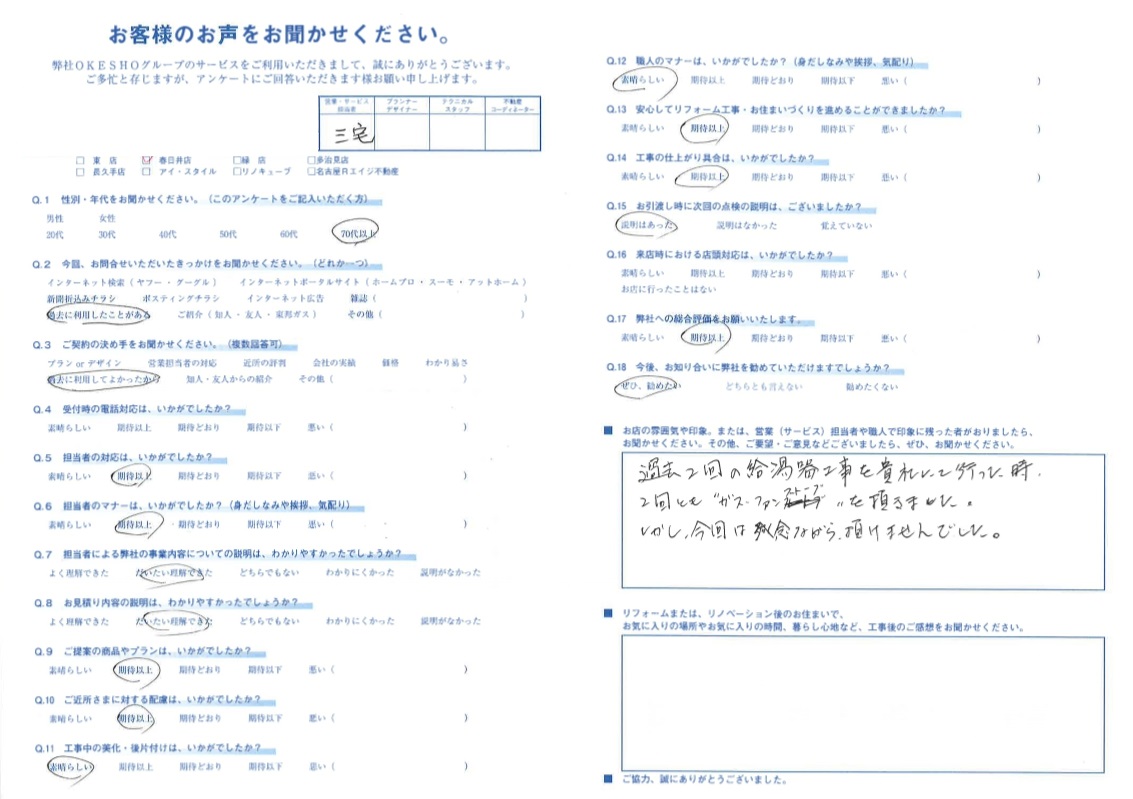 お客様のお声をお聞かせください。
弊社OKESHOグループのサービスをご利用いただきまして、誠にありがとうございます。
ご多忙と存じますが、アンケートにご回答いただきます様お願い申し上げます。
営業・サービス担当者 プランナーデザイナー テクニカルスタッフ 不動産コーディネーター
三宅
□ 東 店 ☑ 春日井店 □ 緑 店 □ 多治見店
□ 長久手店 □ アイ・スタイル □ リノキューブ □ 名古屋Rエイジ不動産
Q.1 性別・年代をお聞かせください。(このアンケートをご記入いただく方)
男性 女性
20代 30代 40代 50代 60代 70代以上
Q.2 今回、お問合せいただいたきっかけをお聞かせください。(どれか一つ)
インターネット検索(ヤフー・グーグル) インターネットポータルサイト(ホームプロ・スーモ・アットホーム)
新聞折込みチラシ ポスティングチラシ インターネット広告 雑誌( )
過去に利用したことがある ご紹介(知人・友人・東邦ガス) その他( )
Q.3 ご契約の決め手をお聞かせください。(複数回答可)
プラン or デザイン 営業担当者の対応 近所の評判 会社の実績 価格 わかり易さ
過去に利用してよかったから 知人・友人からの紹介 その他( )
Q.4 受付時の電話対応は、いかがでしたか?
素晴らしい 期待以上 期待どおり 期待以下 悪い( )
Q.5 担当者の対応は、いかがでしたか?
素晴らしい 期待以上 期待どおり 期待以下 悪い( )
Q.6 担当者のマナーは、いかがでしたか?(身だしなみや挨拶、気配り)
素晴らしい 期待以上 期待どおり 期待以下 悪い( )
Q.7 担当者による弊社の事業内容についての説明は、わかりやすかったでしょうか?
よく理解できた だいたい理解できた どちらでもない わかりにくかった 説明がなかった
Q.8 お見積り内容の説明は、わかりやすかったでしょうか?
よく理解できた だいたい理解できた どちらでもない わかりにくかった 説明がなかった
Q.9 ご提案の商品やプランは、いかがでしたか?
素晴らしい 期待以上 期待どおり 期待以下 悪い( )
Q.10 ご近所さまに対する配慮は、いかがでしたか?
素晴らしい 期待以上 期待どおり 期待以下 悪い( )
Q.11 工事中の美化・後片付けは、いかがでしたか?
素晴らしい 期待以上 期待どおり 期待以下 悪い( )
Q.12 職人のマナーは、いかがでしたか?(身だしなみや挨拶、気配り)
素晴らしい 期待以上 期待どおり 期待以下 悪い( )
Q.13 安心してリフォーム工事・お住まいづくりを進めることができましたか?
素晴らしい 期待以上 期待どおり 期待以下 悪い( )
Q.14 工事の仕上がり具合は、いかがでしたか?
素晴らしい 期待以上 期待どおり 期待以下 悪い( )
Q.15 お引渡し時に次回の点検の説明は、ございましたか?
説明はあった 説明はなかった 覚えていない
Q.16 来店時における店頭対応は、いかがでしたか?
素晴らしい 期待以上 期待どおり 期待以下 悪い( )
お店に行ったことはない
Q.17 弊社への総合評価をお願いいたします。
素晴らしい 期待以上 期待どおり 期待以下 悪い( )
Q.18 今後、お知り合いに弊社を勧めていただけますでしょうか?
ぜひ、勧めたい どちらとも言えない 勧めたくない
■ お店の雰囲気や印象、または、営業(サービス)担当者や職人で印象に残った者がおりましたら、
お聞かせください。その他、ご要望・ご意見などございましたら、ぜひ、お聞かせください。
過去2回の給湯器工事を貴社にて行った時、
2回とも"ガス・ファンストーブ"を頂きました。
しかし、今回は残念ながら、頂けませんでした。
■ リフォームまたは、リノベーション後のお住まいで、
お気に入りの場所やお気に入りの時間、暮らし心地など、工事後のご感想をお聞かせください。
■ ご協力、誠にありがとうございました。